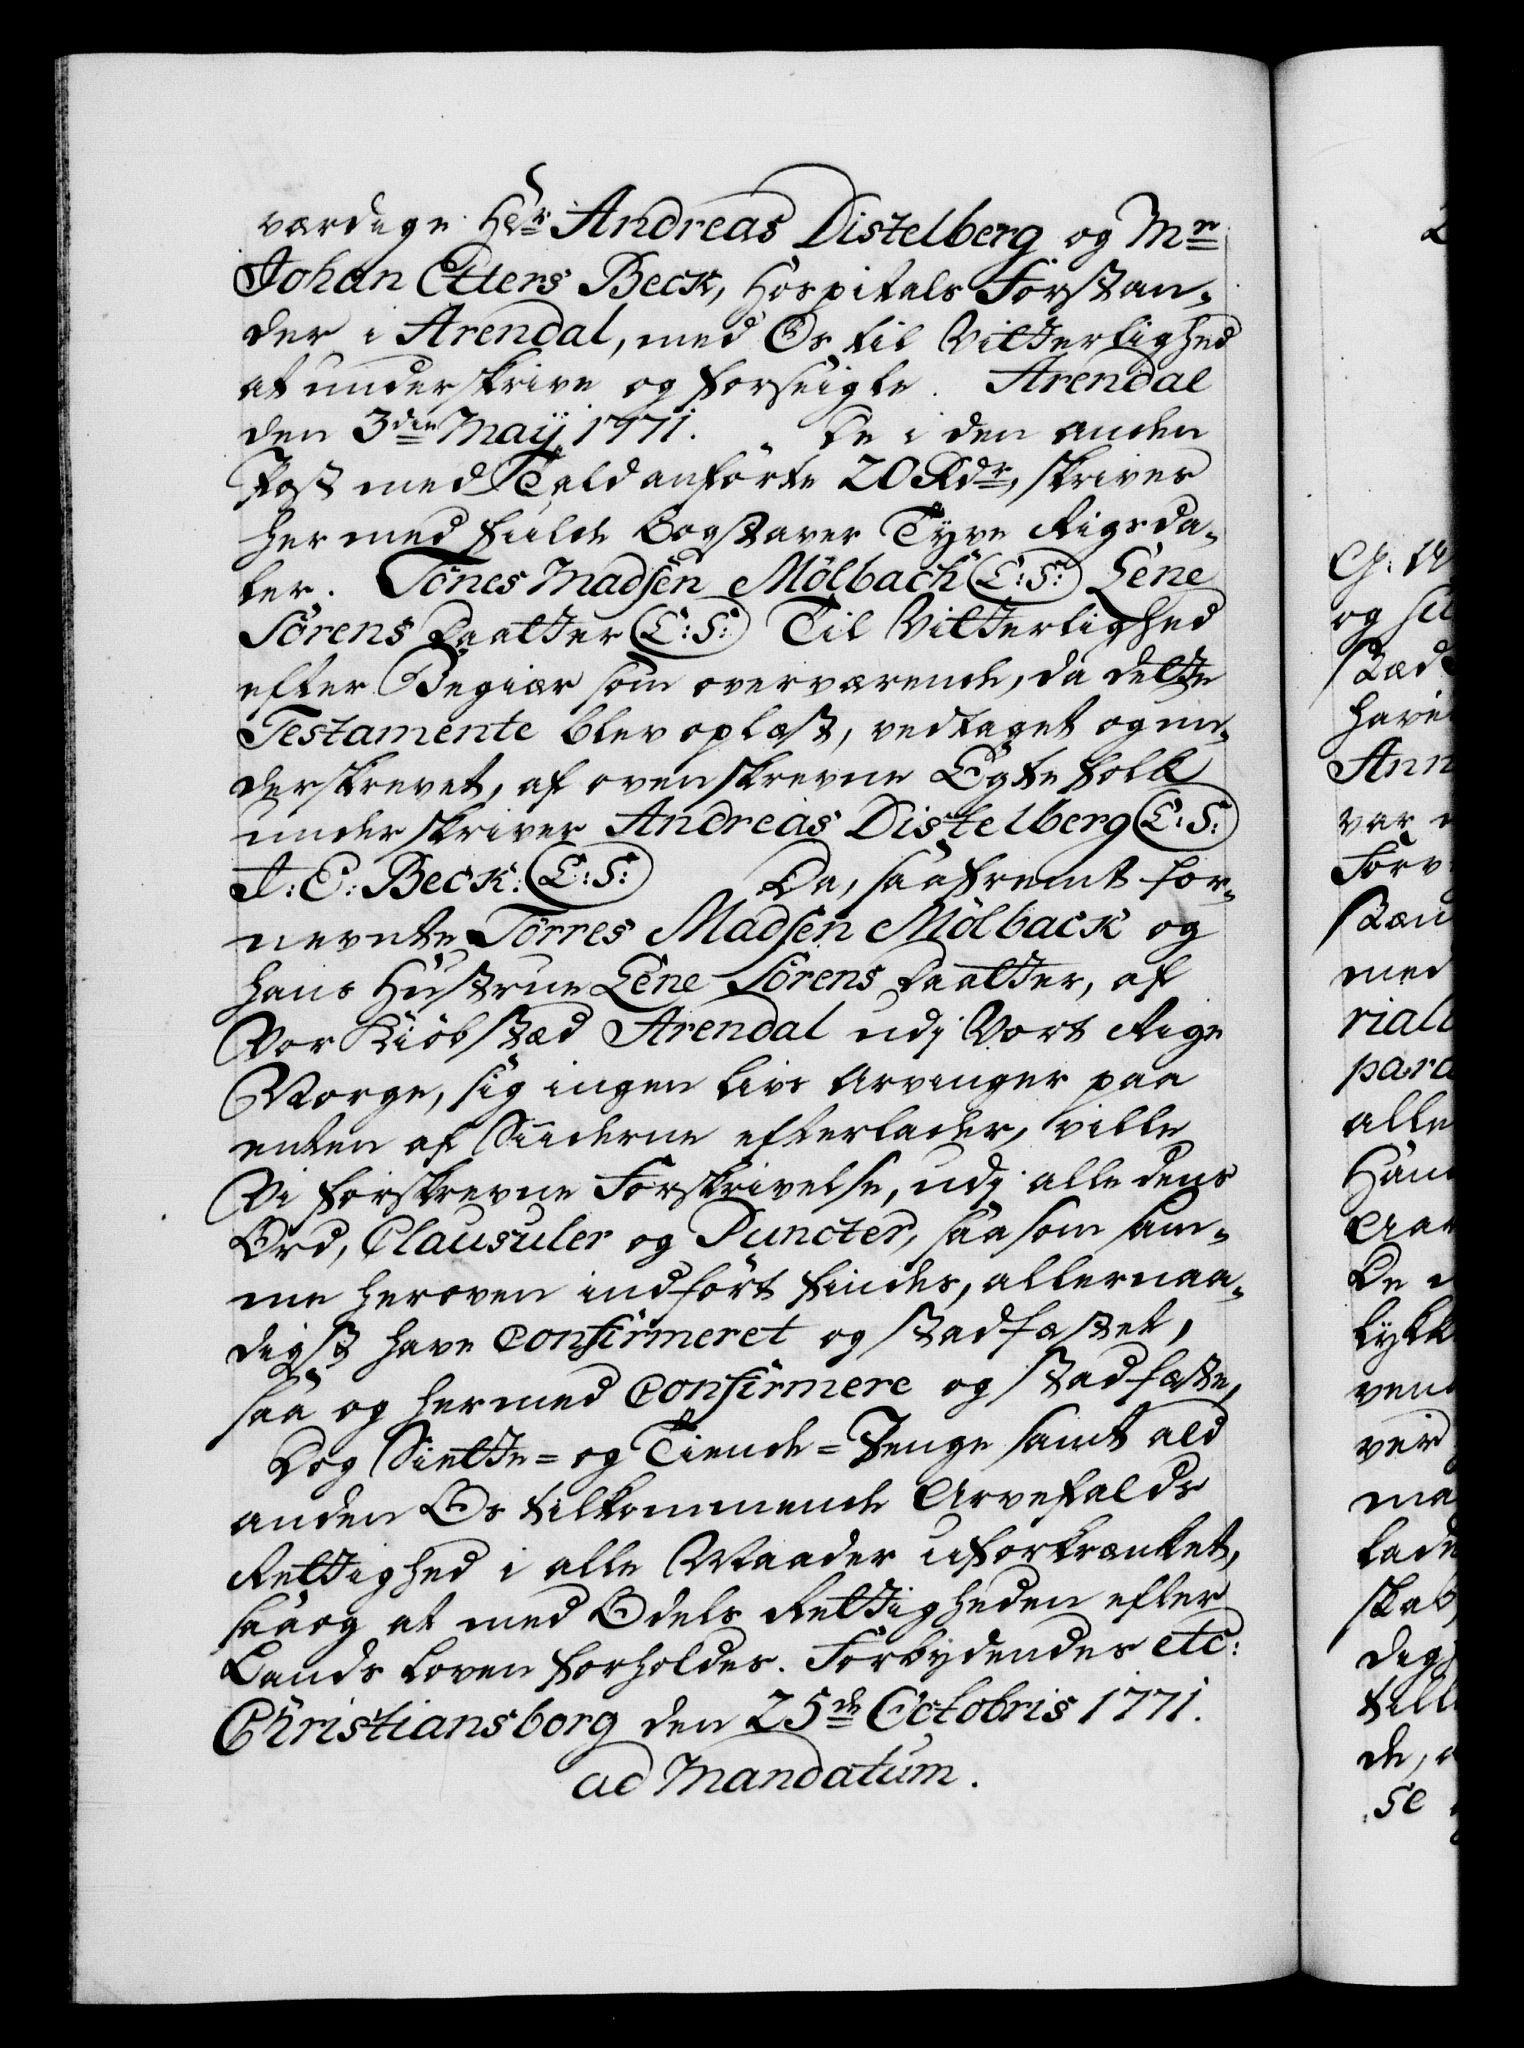 værdige Hr Andreas Distelberg og Mr
Johan Etters Beck, Hospitals Forstan-
der i Arendal, med Os til Vitterlighed
at underskrive og forseigle. Arendal
den 3die Maij 1771. De i den anden
Post med Tald anførte 20 Rdr, skrives
her med fulde Bogstaver Tyve Rigsda-
ler. Tönes Madsen Mölbach (L:S:) Lene
Sörens Daatter (L:S:) Til Vitterlighed
efter Begiær som overværende, da dette
Testamente blev oplæst, vedtaget og un-
derskrevet, af ovenskrevne Egte folk
underskriver Andreas Distelberg (L:S:)
J: E: Beck. (L:S:) Da, saafremt for-
nevnte Törres Madsen Mölback og
hans Hustrue Lene Sörens Daatter, af
Vor Kiöbstæd Arendal udj Vort Rige
Norge, sig ingen Livs Arvinger paa
enten af Siiderne efterlader, ville
Vi forskrevne Forskrivelse, udj alle dens
Ord, Clausuler og Puncter, saasom sam-
me heroven indfört findes, allernaa-
digst have confirmeret og stadfæstet,
saa og hermed confirmere og stadfæste,
Dog Siette= og Tiende=Penge samt ald
anden Os tilkommende Arvefalds
Rettighed i alle Maader uforkrænket,
saa og at med Odels Rettigheden efter
Lands Loven forholdes. Forbydendes etc:
Christiansborg den 25de Octobris 1771.
ad Mandatum.
G:
og
Ann
var
med
riali
para
alle
De
ver
ma
skab
de,
se